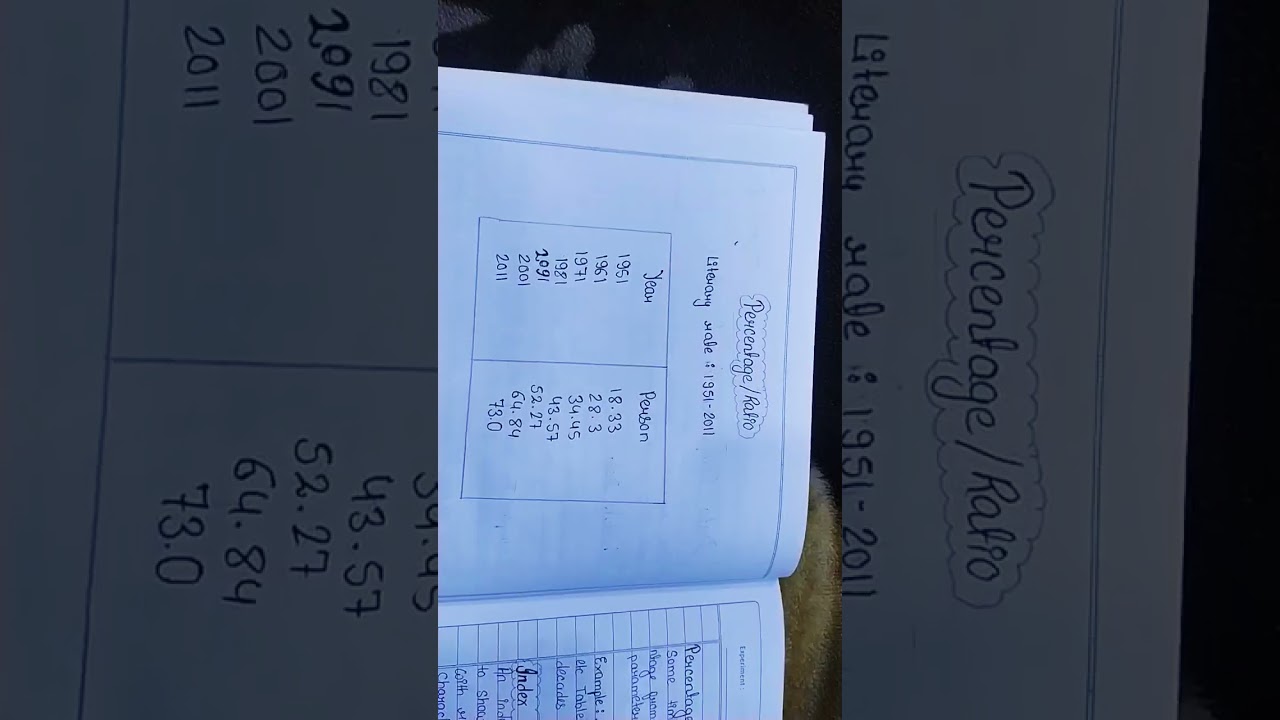 Percentage/Ratio
Literary rate : 1951-2011
Year Person
1951 18.33
1961 28.3
1971 34.45
1981 43.57
2091 52.27
2001 64.84
2011 73.0
Experiment :
Percentage
Some
paramete
Example :
etc Table
decades
Index
An Ind
to Show
with
Charac